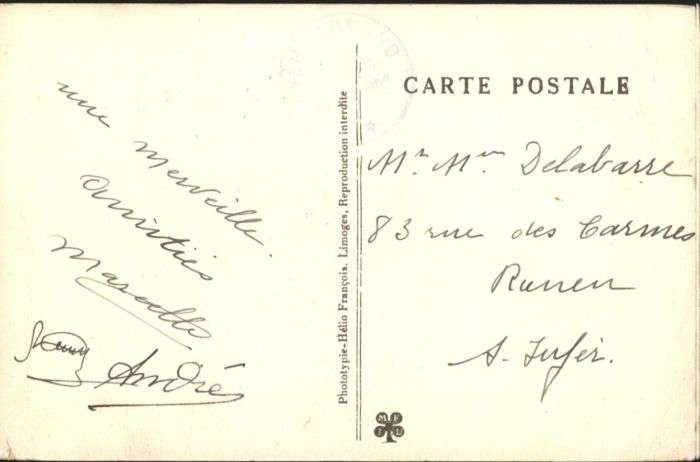 une
merveille.
Amitiés
Marcelle
André
Phototypie-Hélio François, Limoges, Reproduction interdite
CARTE POSTALE
Mr Mme Delabarre
83 rue des Carmes
Rouen
S. Infér.
M F
I L